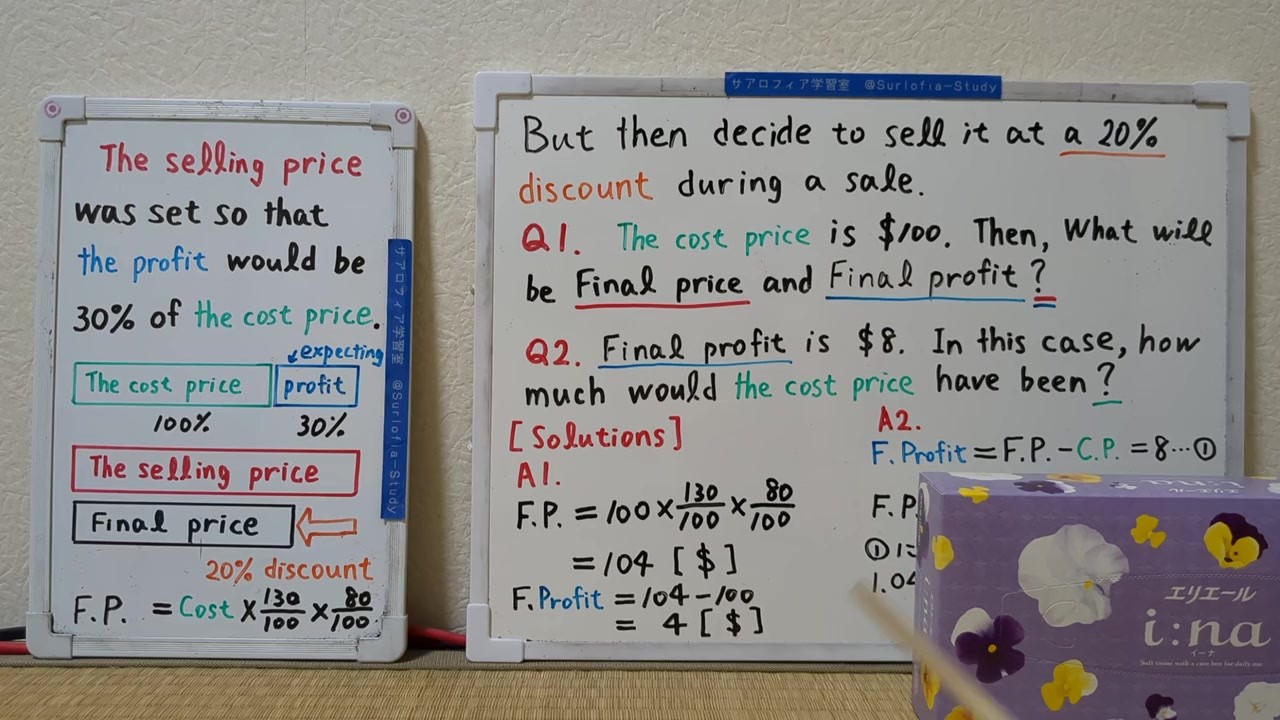 The selling price
was set so that
the profit would be
30% of the cost price.
expecting
The cost price
profit
100%
30%
The selling price
Final price
20% discount
F.P. = Cost × 130/100 × 80/100
サアロフィア学習室 @Surlofia-Study
サアロフィア学習室 @Surlofia-Study
But then decide to sell it at a 20%
discount during a sale.
Q1. The cost price is $100. Then, What will
be Final price and Final profit?
Q2. Final profit is $8. In this case, how
much would the cost price have been?
[Solutions]
A1.
F.P. = 100 × 130/100 × 80/100
= 104 [$]
F.Profit = 104 - 100
= 4 [$]
A2.
F.Profit = F.P. - C.P. = 8 … ①
F.P
①
1.04
エリエール
i:na
イーナ
Soft tissue with a care box for daily use